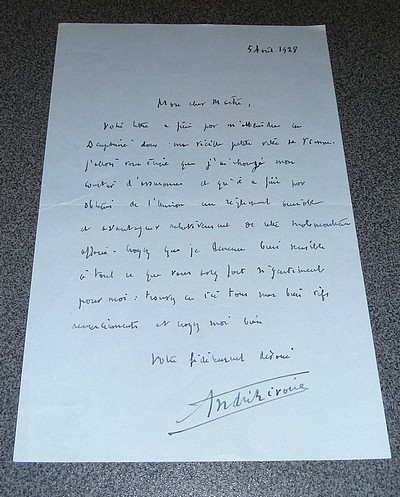 5 Août 1928
Mon cher Maître,
Votre lettre a fini par m'atteindre en
Dauphiné dans ma vieille petite ville de Vienne.
J'allais vous écrire que j'ai changé mon
courtier d'assurances et qu'il a fini par
obtenir de l'Union un règlement
et avantageux relativement de cette malheureuse
affaire. Croyez que je demeure bien sensible
à tout ce que vous avez fait si gentiment
pour moi : trouvez en ici tous mes bien vifs
remerciements et croyez moi bien
Votre fidèlement dévoué
André Rivoire